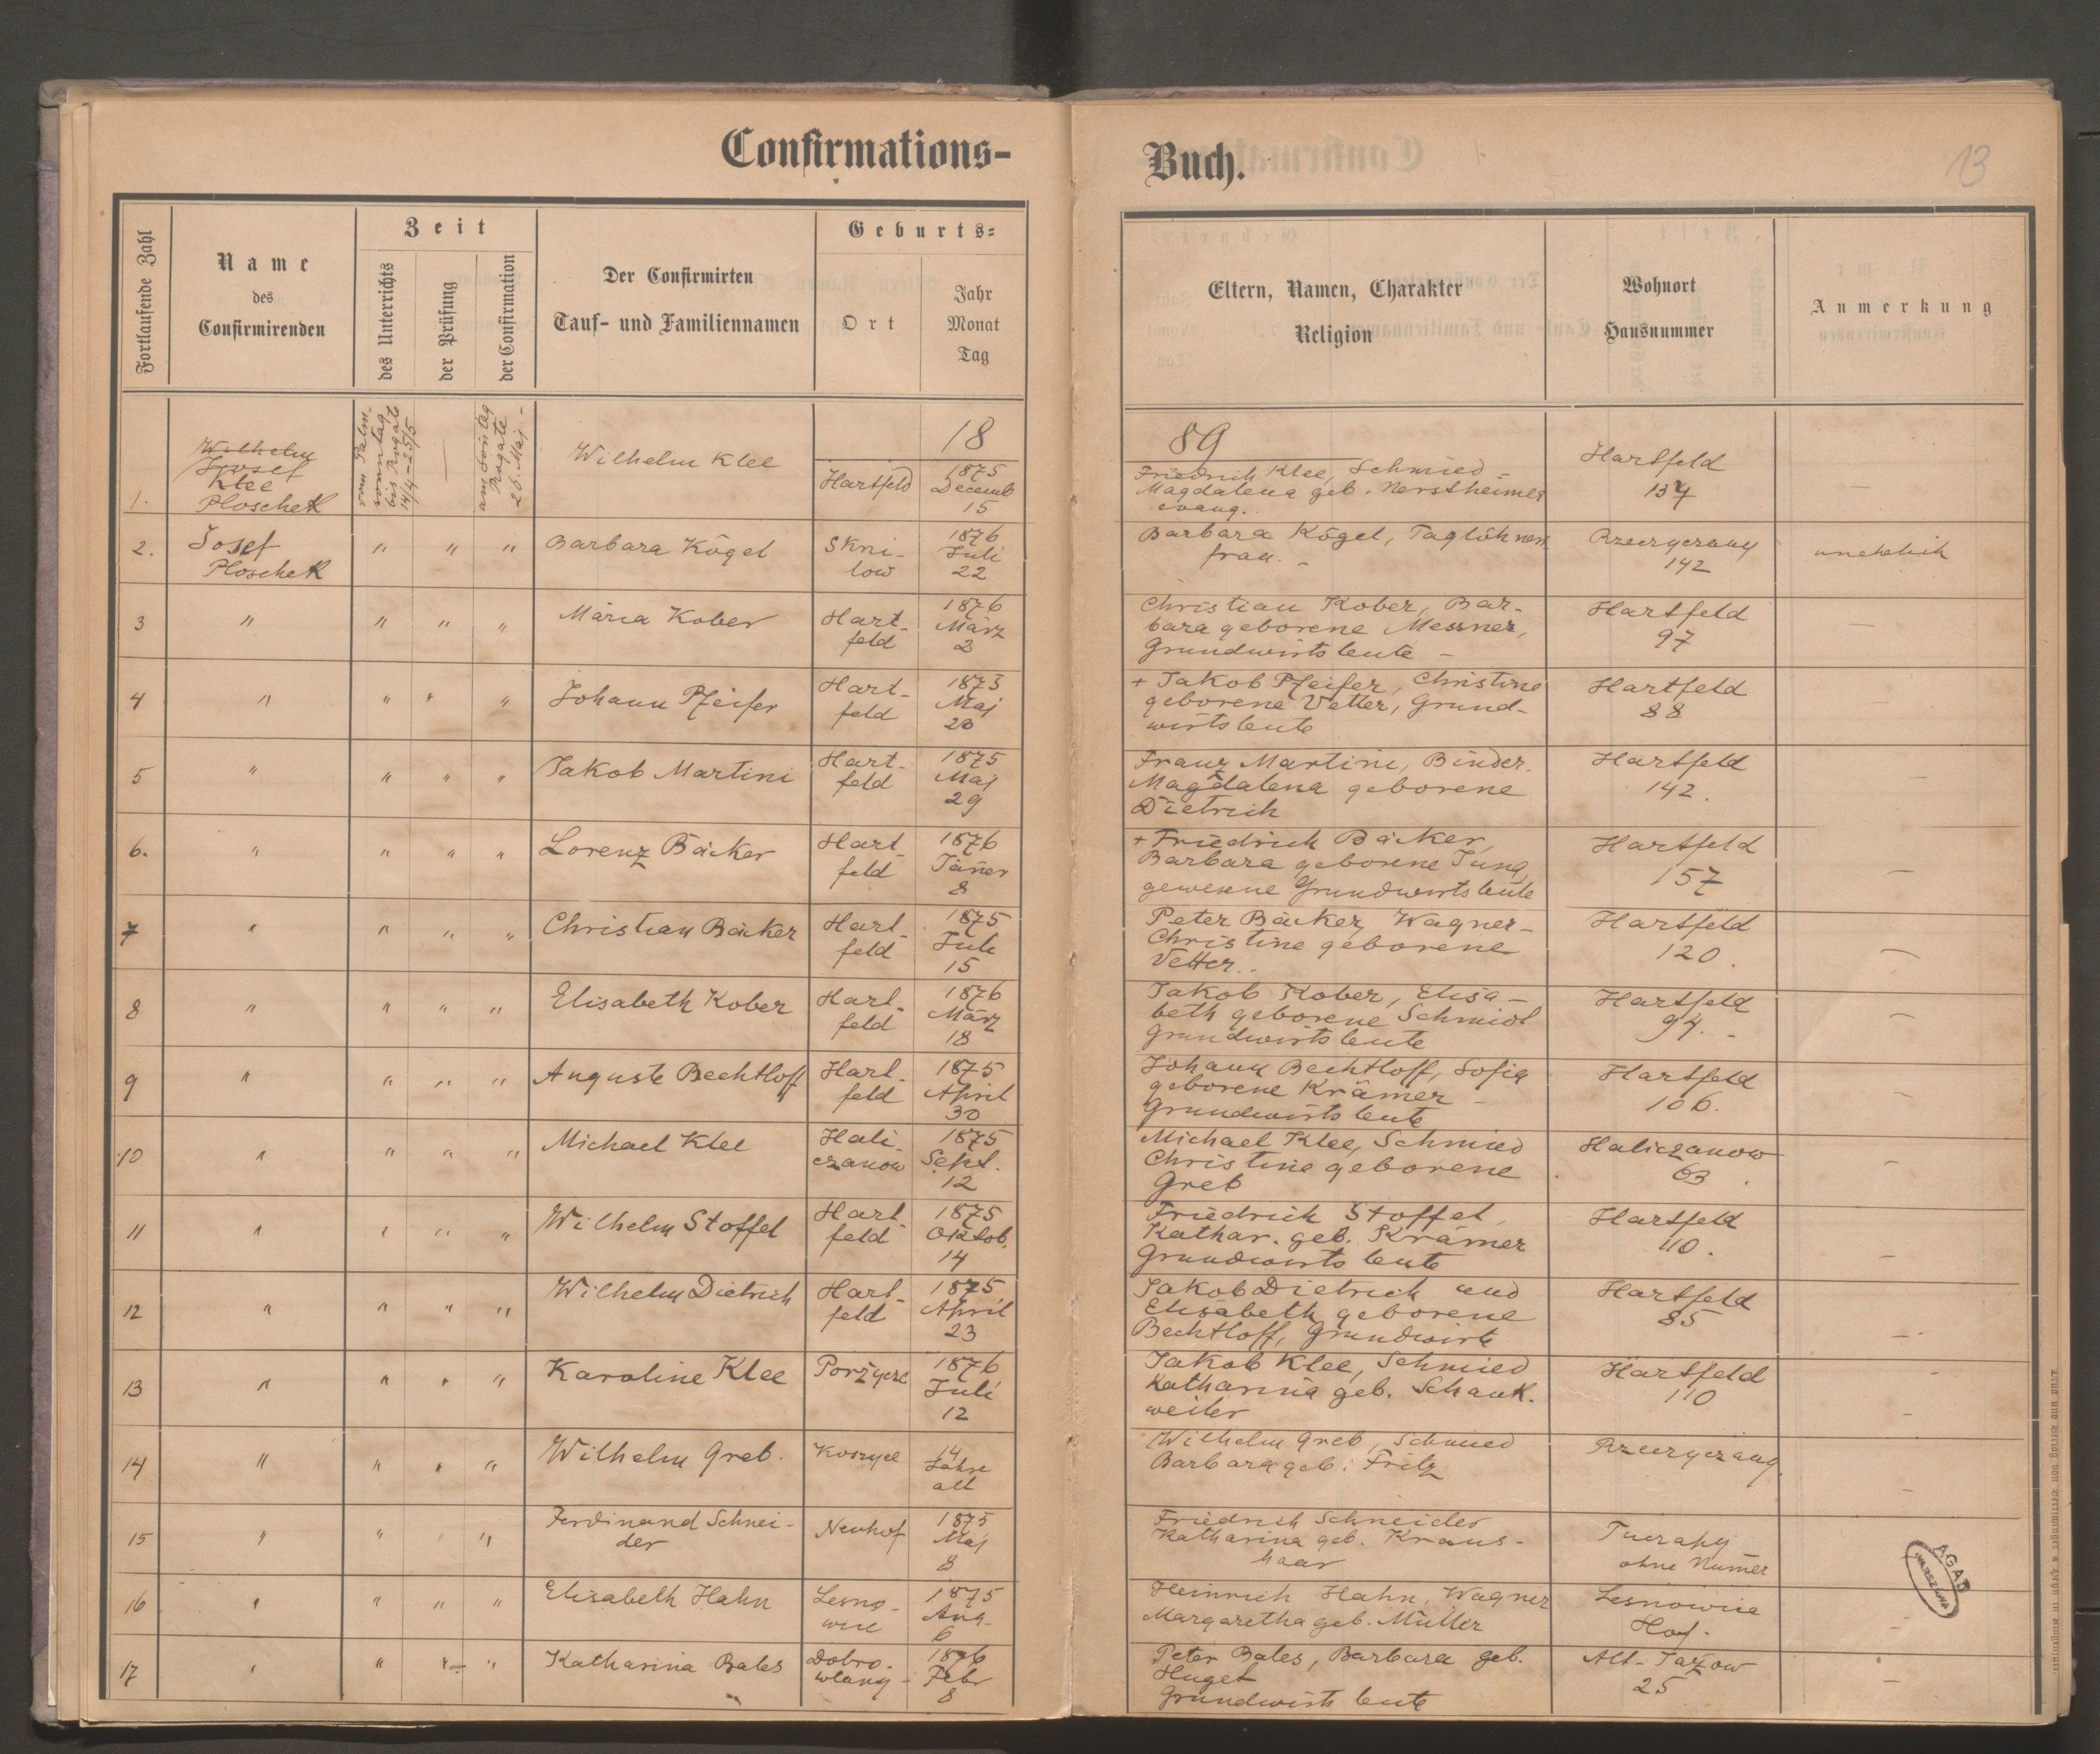 Confirmations-
Buch.
13
Fortlaufende Zahl
Name
des
Confirmirenden
Zeit
des Unterrichts
der Prüfung
der Confirmation
Der Confirmirten
Tauf- und Familiennamen
Geburts-
Ort
Jahr
Monat
Tag
Eltern, Namen, Charakter
Religion
Wohnort
Hausnummer
Anmerkung
18
89
1.
Wilhelm
Josef
Klee
Ploschek
vom Palm-
sonntag
bis Rogate
14/4-25/5
—
am Sontag
Rogate
26. Maj.-
Wilhelm Klee
Hartfeld
1875
Decemb
15
Friedrich Klee, Schmied -
Magdalena geb. Nerstheimer
evang.
Hartfeld
134
—
2.
Josef
Ploschek
" " "
Barbara Kögel
Skni-
low
1876
Juli
22
Barbara Kögel, Taglöhners
frau. -
142
unehelich
3
"
" " "
Maria Kober
Hart-
feld
1876
März
2
Christian Kober, Bar-
bara geborene Messner,
Grundwirtsleute -
Hartfeld
97
—
4
"
" " "
Johann Pfeifer
Hart-
feld
1873
Maj
20
+ Jakob Pfeifer, Christine
geborene Vetter, Grund-
wirtsleute
Hartfeld
88
—
5
"
" " "
Jakob Martini
Hart-
feld
1875
Maj
29
Franz Martini, Binder.
Magdalena geborene
Dietrich
Hartfeld
142.
—
6.
"
" " "
Lorenz Bäcker
Hart-
feld
1876
Jäner
8
+ Friedrich Bäcker,
Barbara geborene Jung
gewesene Grundwirtsleute
Hartfeld
157
—
7
"
" " "
Christian Bäcker
Hart-
feld
1875
Juli
15
Peter Bäcker, Wagner -
Christine geborene
Vetter.
Hartfeld
120.
—
8
"
" " "
Elisabeth Kober
Hart-
feld
1876
März
18
Jakob Kober, Elisa-
beth geborene Schmidt
Grundwirtsleute
Hartfeld
94. -
—
9
"
" " "
Auguste Bechtloff
Hart-
feld
1875
April
30
Johann Bechtloff, Sofia
geborene Krämer -
Grundwirtsleute
Hartfeld
106.
—
10
"
" " "
Michael Klee
Hali
czanow
1875
Sept.
12
Michael Klee, Schmied
Christine geborene
Greb
Haliczanow
63.
—
11
"
" " "
Wilhelm Stoffel
Hart-
feld
1875
Oktob.
14
Friedrich Stoffel,
Kathar. geb. Krämer
Grundwirtsleute
Hartfeld
110.
—
12
"
" " "
Wilhelm Dietrich
Hart-
feld
1875
April
23
Jakob Dietrich und
Elisabeth geborene
Bechtloff, Grundwirte
Hartfeld
85
—
13
"
" " "
Karoline Klee
1876
Juli
12
Jakob Klee, Schmied
Katharina geb. Schank.
weiler
Hartfeld
110
—
14
"
" " "
Wilhelm Greb.
14
Jahre
alt
Wilhelm Greb, Schmied
Barbara geb. Fritz
—
15
"
" " "
Ferdinand Schnei-
der
Neuhof
1875
Maj
8
Friedrich Schneider
Katharina geb. Kraus-
haar
ohne Numer
16
"
" " "
Elisabeth Hahn
Lesno-
wice
1875
Aug.
6
Heinrich Hahn, Wagner
Margaretha geb. Müller
Lesnowice
Hof.
—
17
"
" " "
Katharina Bales
1876
Febr
8
Peter Bales, Barbara geb.
Huget
Grundwirtsleute
Alt-Jazow
25
—
AGAD
WARSZAWA